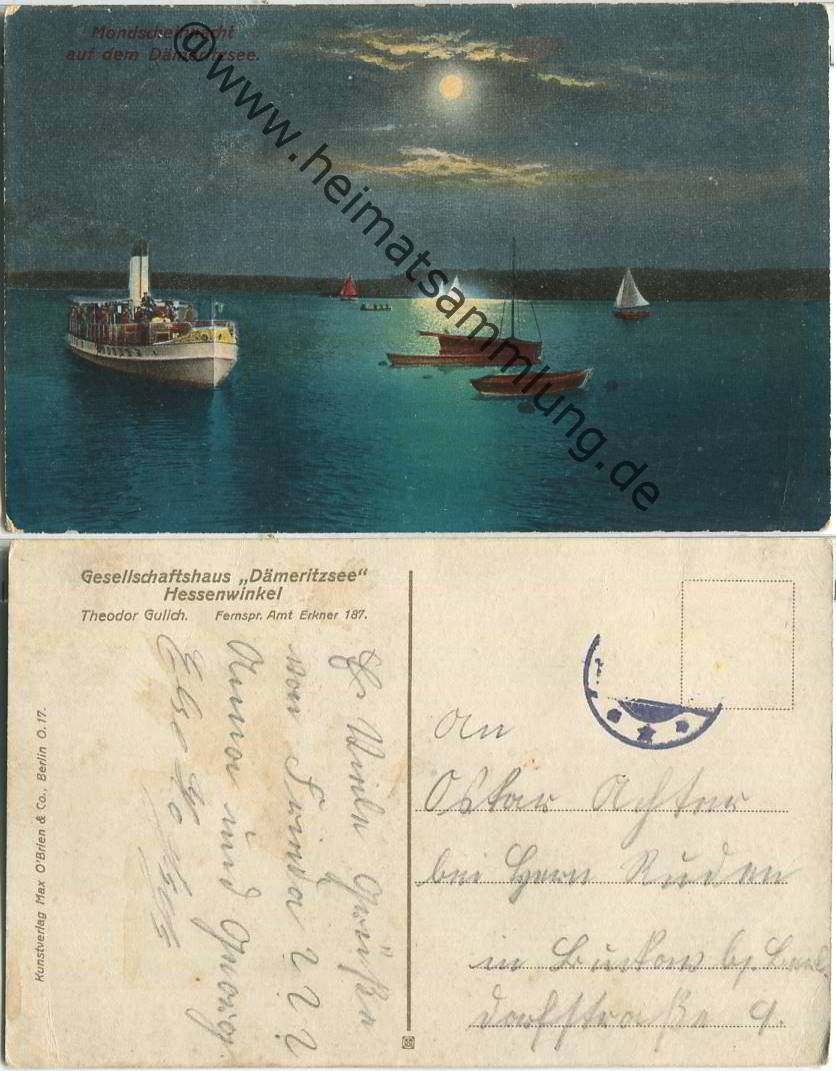 Mondscheinnacht
auf dem Dämeritzsee.
@www.heimatsammlung.de
Gesellschaftshaus „Dämeritzsee“
Hessenwinkel
Theodor Gulich. Fernspr. Amt Erkner 187.
Kunstverlag Max O'Brien & Co., Berlin O. 17.
Viele Grüße
von
Anna und
Else
An
Oskar Achter
bei Herrn Ruden
in Buckow b/.
dorfstraße 9.